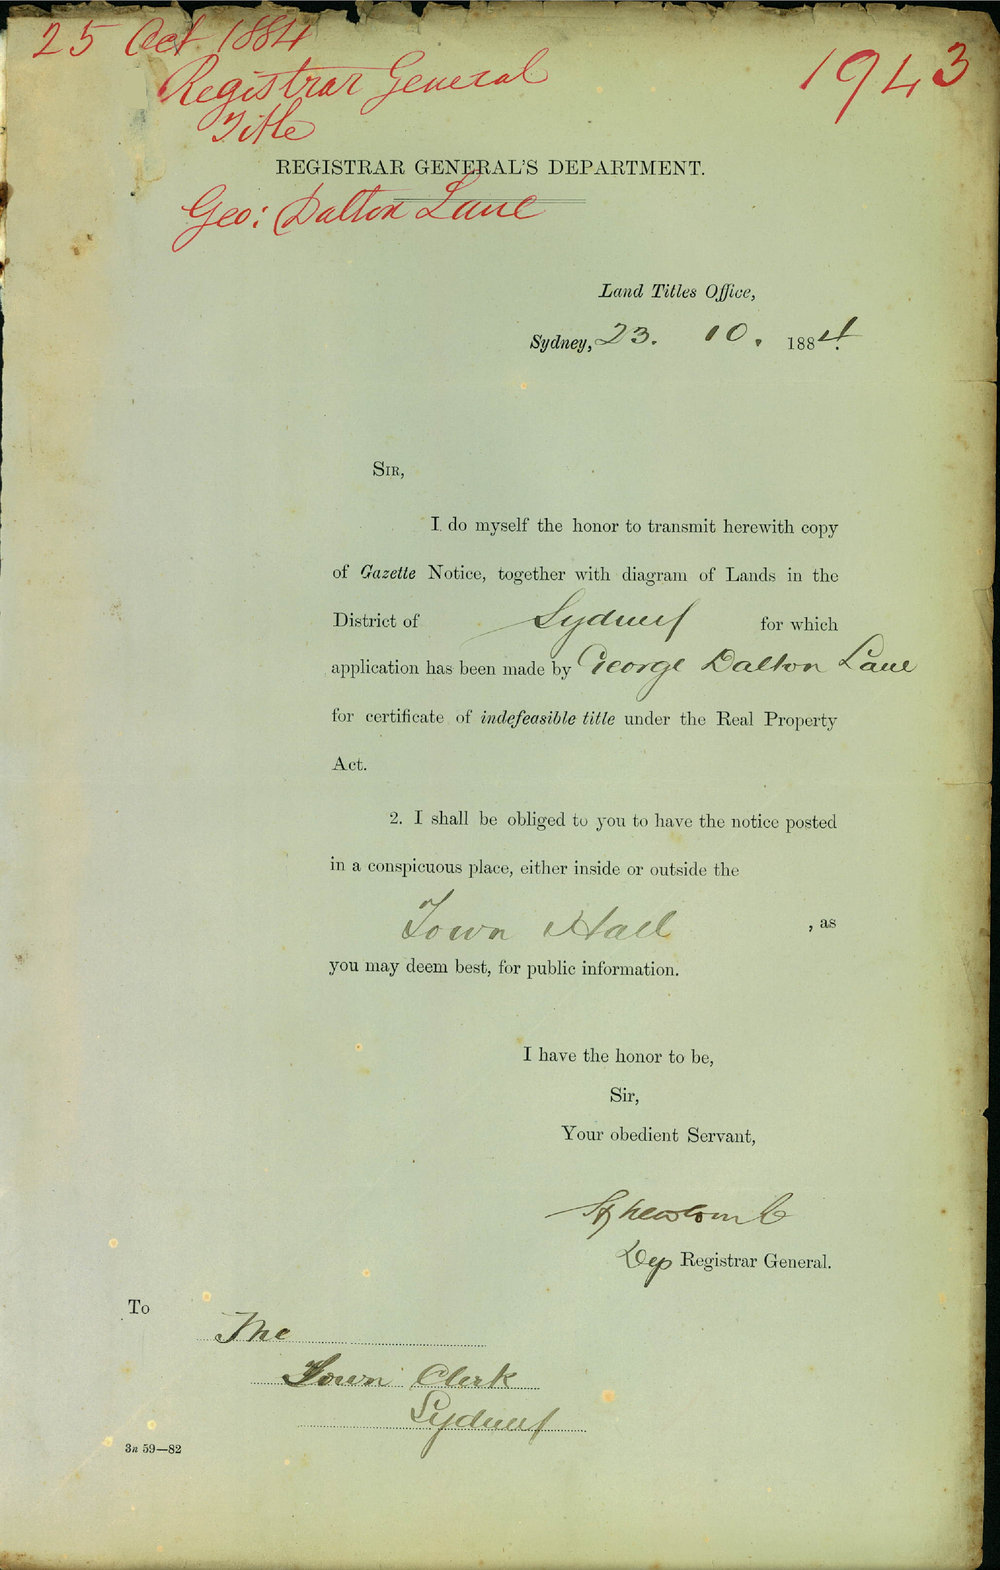 25 Oct 1884
1943
Registrar General
Title
REGISTRAR GENERAL'S DEPARTMENT.
Geo: Dalton Lane
Land Titles Office,
Sydney, 23. 10. 1884.
SIR,
I do myself the honor to transmit herewith copy
of Gazette Notice, together with diagram of Lands in the
District of Sydney for which
application has been made by George Dalton Lane
for certificate of indefeasible title under the Real Property
Act.
2. I shall be obliged to you to have the notice posted
in a conspicuous place, either inside or outside the
Town Hall , as
you may deem best, for public information.
I have the honor to be,
Sir,
Your obedient Servant,
Dep Registrar General.
To
The
Town Clerk
Sydney
3n 59—82